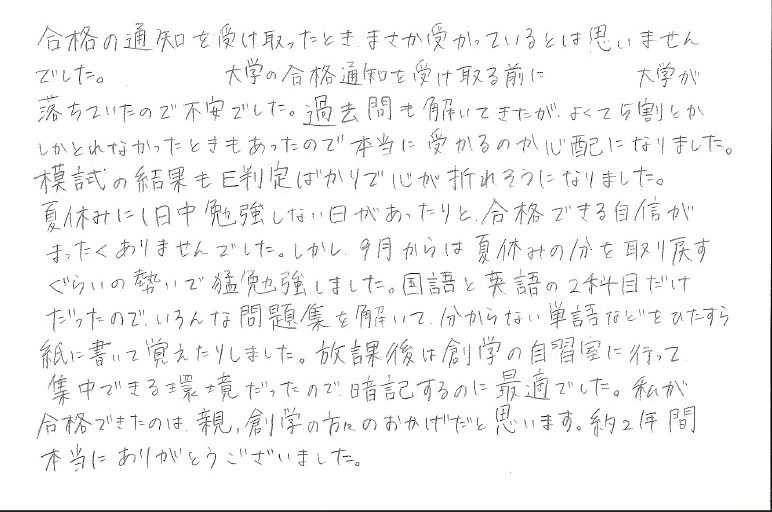 合格の通知を受け取ったとき、まさか受かっているとは思いません
でした。 大学の合格通知を受け取る前に 大学が
落ちていたので不安でした。過去問も解いてきたが、よくて5割とか
しかとれなかったときもあったので本当に受かるのか心配になりました。
模試の結果もE判定ばかりで心が折れそうになりました。
夏休みに1日中勉強しない日があったりと、合格できる自信が
まったくありませんでした。しかし、9月からは夏休みの分を取り戻す
ぐらいの勢いで猛勉強しました。国語と英語の2科目だけ
だったので、いろんな問題集を解いて、分からない単語などをひたすら
紙に書いて覚えたりしました。放課後は創学の自習室に行って
集中できる環境だったので、暗記するのに最適でした。私が
合格できたのは、親、創学の方々のおかげだと思います。約2年間
本当にありがとうございました。